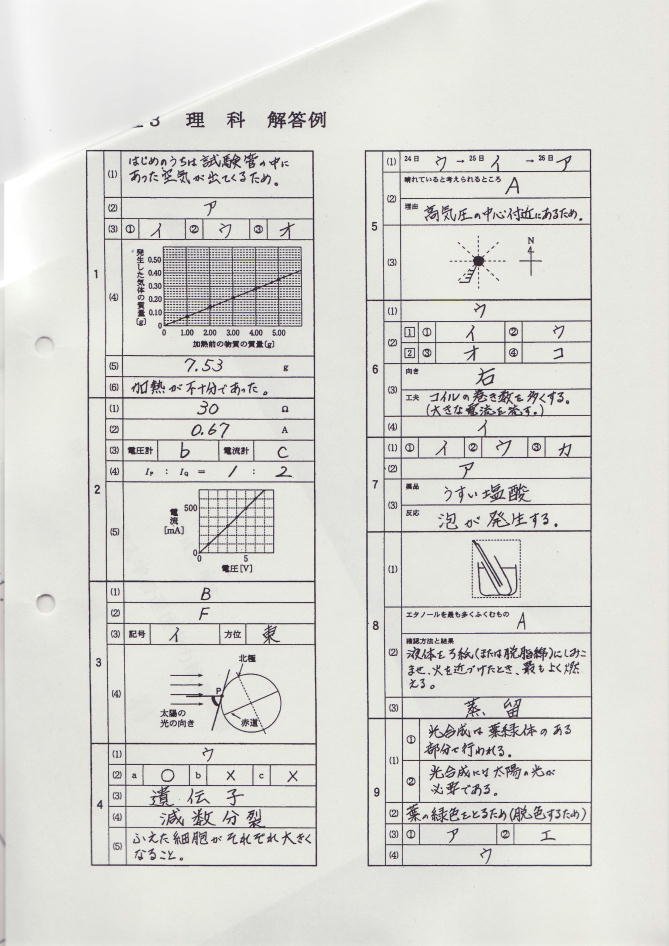 3 理科 解答例
1
(1) はじめのうちは試験管の中に
あった空気が出てくるため。
(2) ア
(3) ① イ ② ウ ③ オ
(4) 発生した気体の質量[g]
0.50
0.40
0.30
0.20
0.10
0
0 1.00 2.00 3.00 4.00 5.00
加熱前の物質の質量[g]
(5) 7.53 g
(6) 加熱が不十分であった。
2
(1) 30 Ω
(2) 0.67 A
(3) 電圧計 b 電流計 C
(4) IP : IQ = 1 : 2
(5) 電流[mA]
500
0
0 5
電圧[V]
3
(1) B
(2) F
(3) 記号 イ 方位 東
(4) 北極
P
太陽の
光の向き
赤道
4
(1) ウ
(2) a ○ b × c ×
(3) 遺伝子
(4) 減数分裂
(5) ふえた細胞がそれぞれ大きく
なること。
5
(1) 24日 ウ → 25日 イ → 26日 ア
(2) 晴れていると考えられるところ
A
理由 高気圧の中心付近にあるため。
(3) N
6
(1) ウ
(2) 1 ① イ ② ウ
2 ③ オ ④ コ
(3) 向き 右
工夫 コイルの巻き数を多くする。
(大きな電流を流す。)
(4) イ
7
(1) ① イ ② ウ ③ カ
(2) ア
(3) 薬品 うすい塩酸
反応 泡が発生する。
8
(1)
(2) エタノールを最も多くふくむもの
A
確認方法と結果
液体をろ紙(または脱脂綿)にしみこ
ませ、火を近づけたとき、最もよく燃
える。
(3) 蒸留
9
(1) ① 光合成は葉緑体のある
部分で行われる。
② 光合成には太陽の光が
必要である。
(2) 葉の緑色をとるため(脱色するため)
(3) ① ア ② エ
(4) ウ